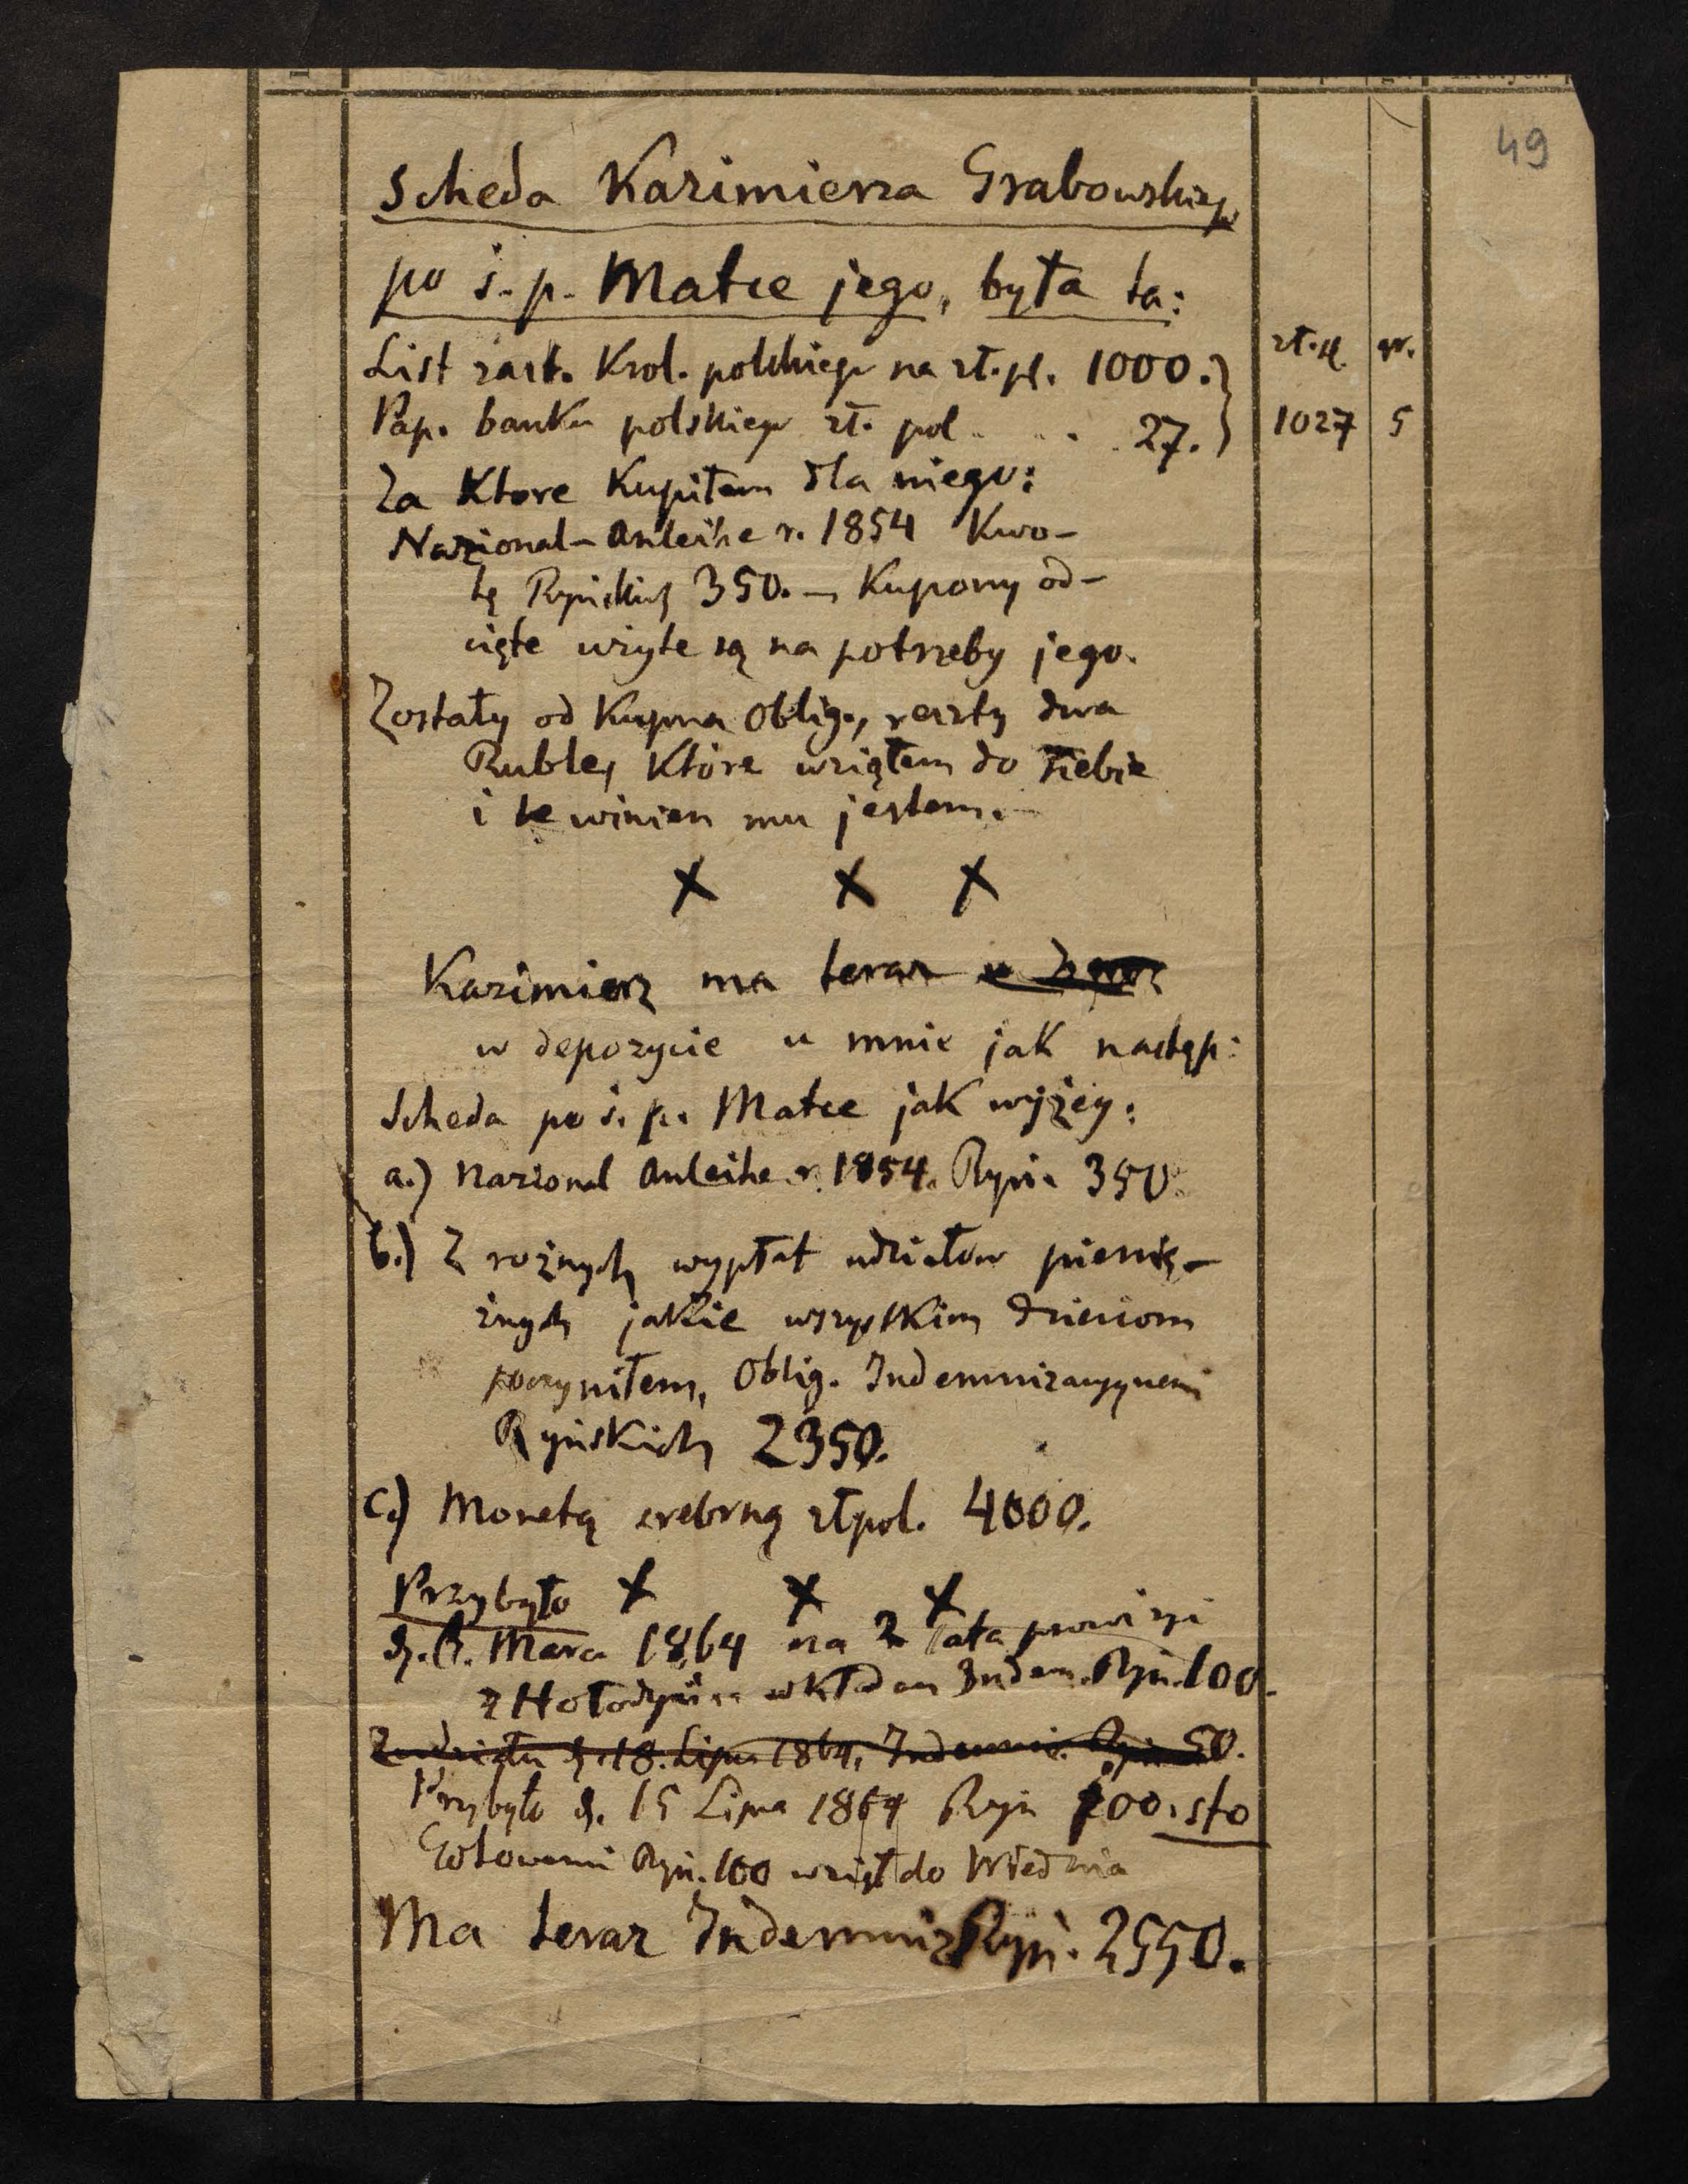 49
Scheda Kazimierza Grabowskiego
po ś. p. Matce jego, była ta:
List zast. Krol. polskiego na zł. pl. 1000.
zł. pl. gr.
Pap. banku polskiego zł. pol . . . 27.
1027 5
Za Ktore Kupiłem dla niego:
Nazional-Anleihe r. 1854 Kwo-
tę Ryńskich 350. – Kupony od-
cięte użyte są na potrzeby jego.
Zostały od Kupna Oblig., reszty dwa
Ruble, Które wziąłem do siebie
i te winien mu jestem. –
x x x
Kazimierz ma teraz
w depozycie u mnie jak następ:
Scheda po ś. p. Matce jak wyżey:
a.) Nazional Anleihe r. 1854. Ryń. 350.
b.) Z rożnych wypłat udziałow pienię-
żnych jakie wszystkim dzieciom
poczyniłem, Oblig. Indemnizacyjnemi
Ryńskich 2350.
c.) Monetą srebrną złpol. 4000.
Przybyło x x x
Marca 1864 za 2 lata prowizyi
z wkładem Indem. Ryń. 100.
Z udziału d. 18. Lipca 1864. Indemniz. Ryń. 50.
Przybyło d. 15 Lipca 1864 Ryń 100. sto
Gotowemi Ryń. 100 wziął do Wiednia
Ma teraz Indemniz Ryń. 2550.